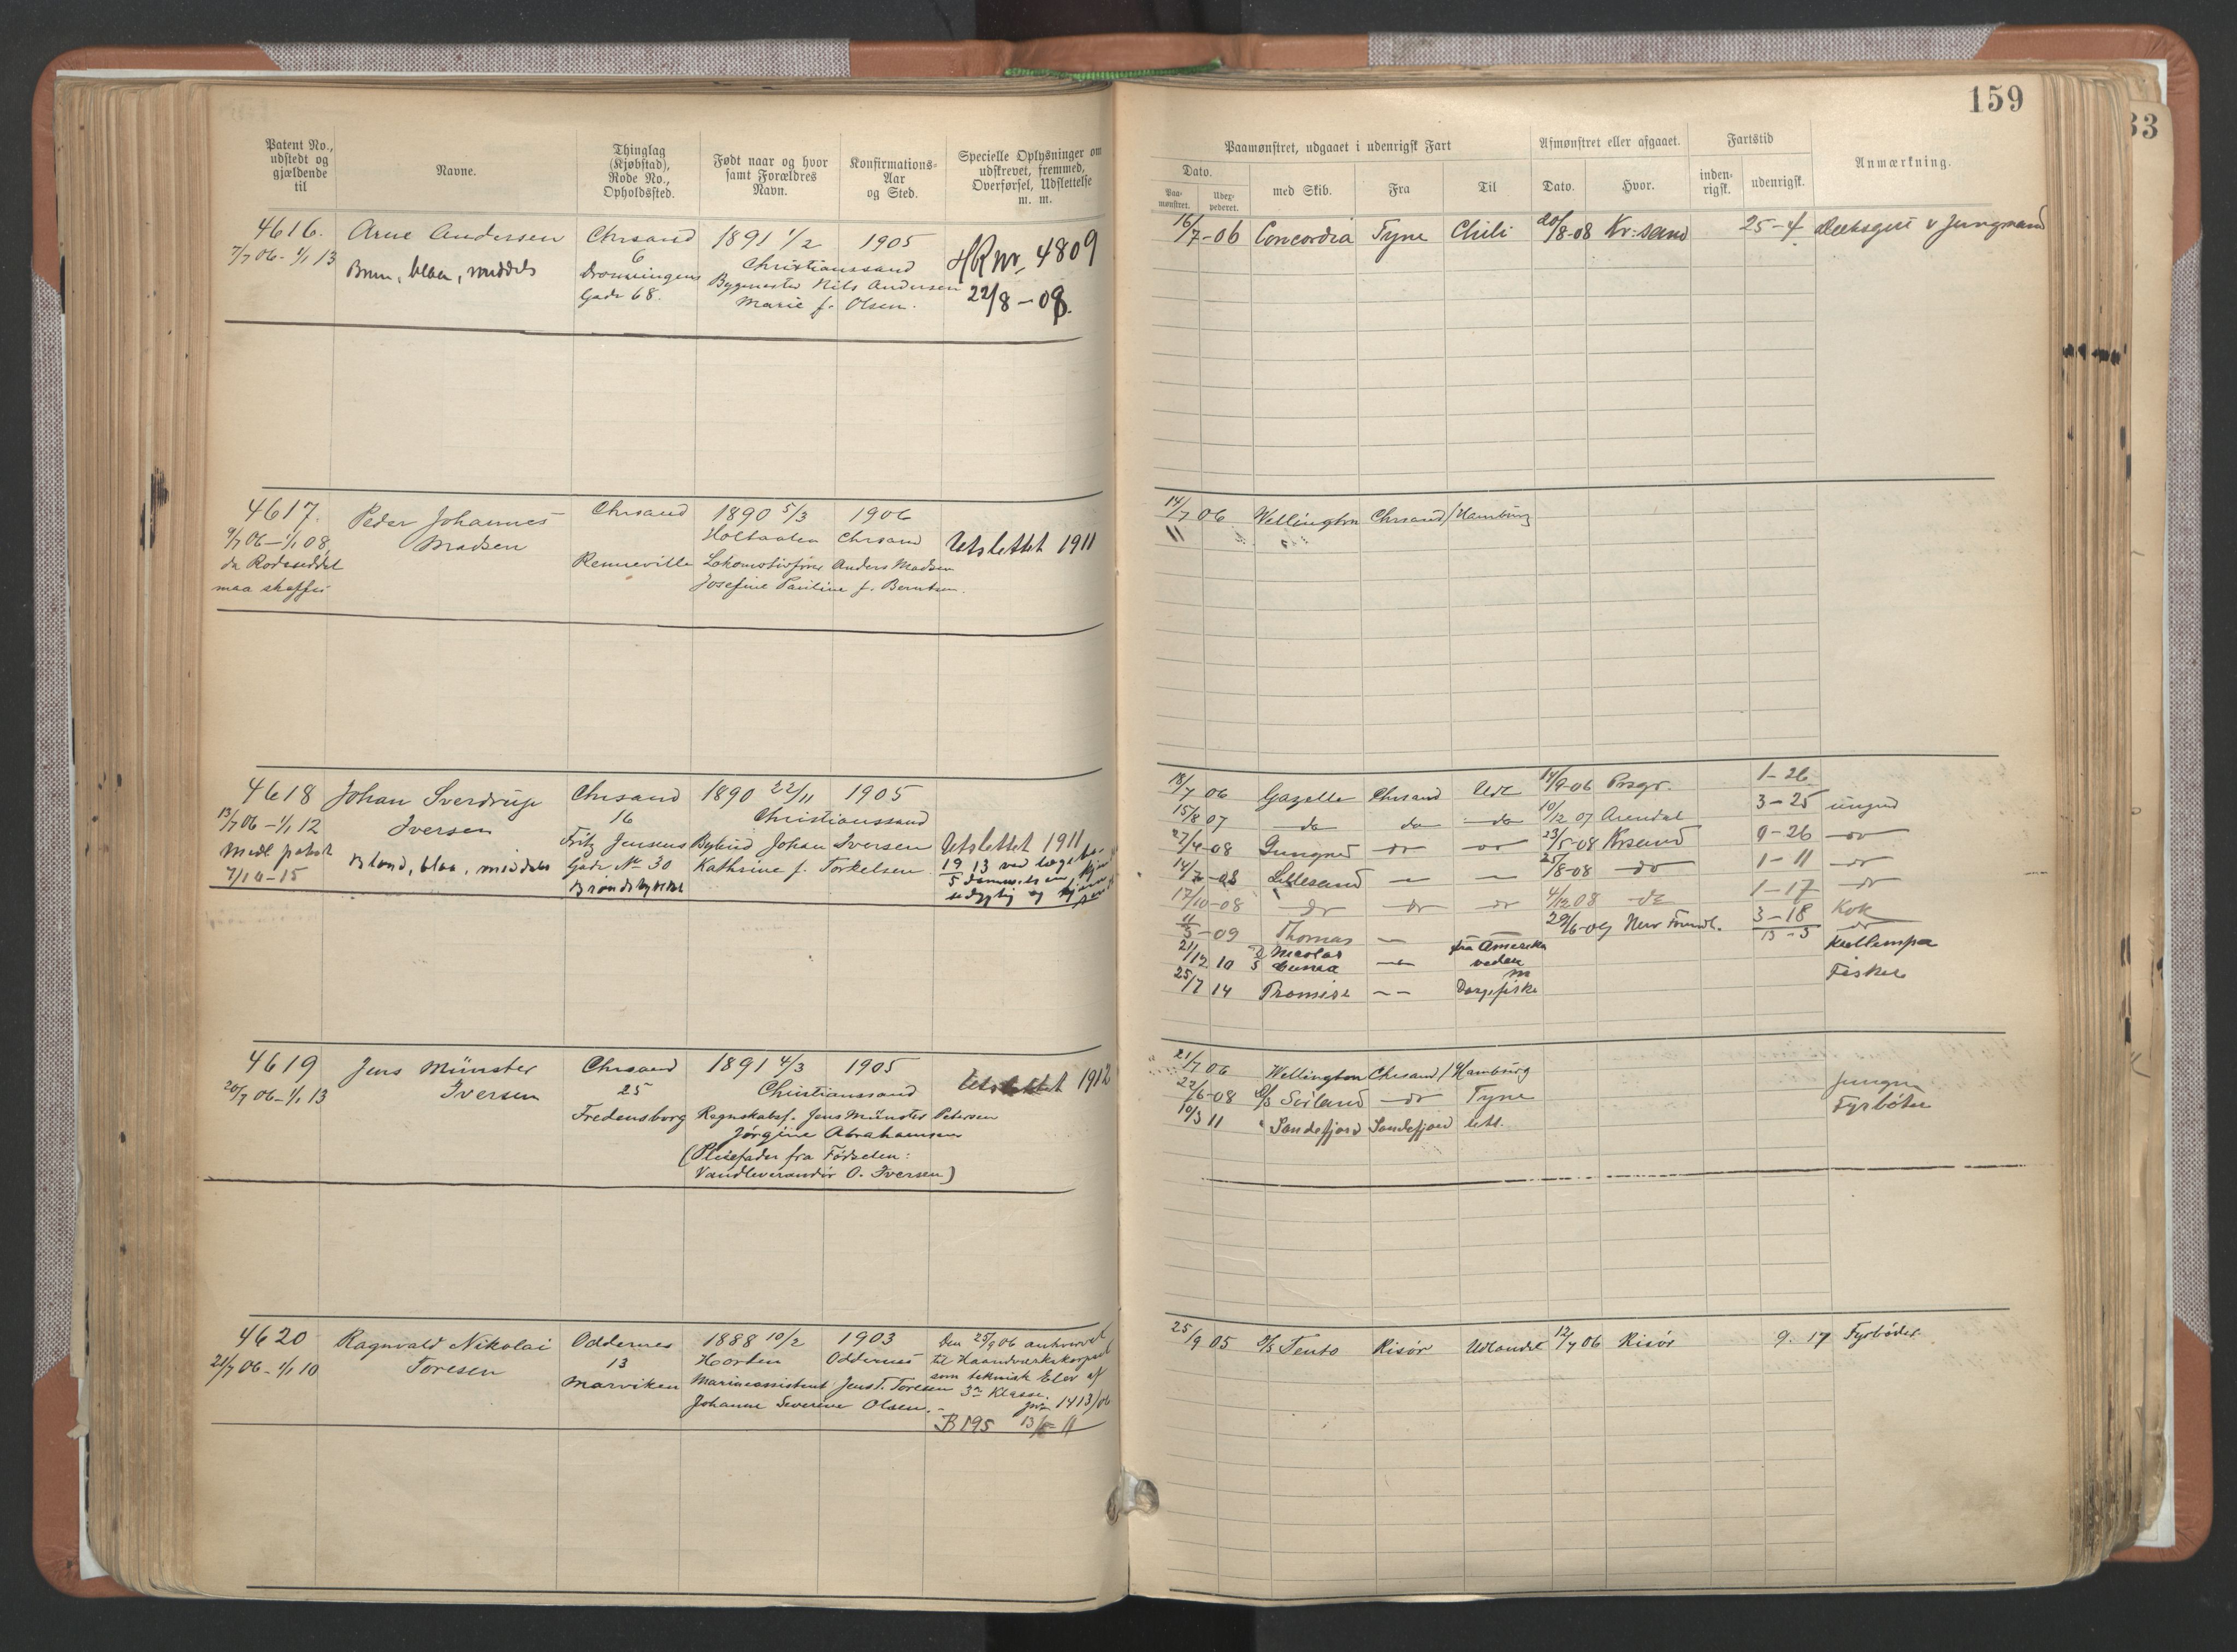 159
33
Patent No., udstedt og gjældende til
Navne.
Thinglag (Kjøbstad), Rode No., Opholdssted.
Født naar og hvor samt Forældres Navn.
Konfirmations-Aar og Sted.
Specielle Oplysninger om udskrevet, fremmed, Overførsel, Udslettelse m. m.
Paamønstret, udgaaet i udenrigsk Fart
Afmønstret eller afgaaet.
Fartstid
Anmærkning.
Dato.
Paa-mønstret.
Udex-pederet.
med Skib.
Fra
Til
Dato.
Hvor.
inden-rigsk.
udenrigsk.
4616. Arne Andersen Chrsand 1891 1/2 1905 HR nr. 4809
7/7 06 - 1/1 13 Brun, blaa, middels 6 Christianssand 22/8 - 08.
Dronningens Bygmester Nils Andersen
Gade 68. Marie f. Olsen.
16/7-06 Concordia Tyne Chili 20/8-08 Kr:sand 25-4 Dæksgut & Jungmand
4617. Peder Johannes Chrsand 1890 5/3 1906
9/7 06 - 1/1 08 Madsen Holtaalen Chrsand Utslettet 1911
da Rodeseddel Lokomotivfører Anders Madsen
maa skaffes Josefine Pauline f. Berntsen.
14/7 06 Wellington Chrsand / Hamburg
4618 Johan Sverdrup Chrsand 1890 22/11 1905
13/7 06 - 1/1 12 Iversen 16 Christianssand
Blond, blaa, middels Fritz Jensens Bybud Johan Iversen Utslettet 1911
7/10-15 Gade No 30 Kathrine f. Torkelsen.
18/7 06 Gazelle Chrsand Udl 14/9-06 Prsgr. 1-26
15/8 07 do do do 10/12 07 Arendal 3-25 ungmd
27/4-08 Gungner do do 23/5-08 Krsand 0-26 do
14/7-08 Lillesand — — 25/8-08 do 1-11 do
17/10-08 do do do 4/12 08 do 1-17 do
11/3-09 Thomas — — 29/6-09 New Foundl. 3-18 Kok
21/12 10 — fra Amerika 13-5 Kullemper
25/7 14 Promise — — Fisker
4619 Jens Münster Chrsand 1891 4/3 1905 Utslettet 1912
20/7 06 - 1/1 13 Iversen 25 Christianssand
Fredensborg Regnskabsf. Jens Münster Petersen
Jørgine Abrahamsen
(Pleiefader fra Fødselen:
Vandleverandør O. Iversen)
21/7 06 Wellington Chrsand / Hamburg
22/6-08 D/S Sörland do Tyne Jungm
10/3 11 Sandefjord Sandefjord Utl. Fyrböter
4620 Ragnvald Nikolai Oddernes 1888 10/2 1903 Den 25/9 06 antrukket
21/7 06 - 1/1 10 Toresen 13 Horten Oddernes til Haandværkskorpset
Marviken Marineassistent Jens T. Toresen som teknisk Elev af
Johanne Severine Olsen. 3die Klasse.
jvn 1413/06
B 195
25/9 05 D/S Tento Risør Udlandet 12/7 06 Risör 9. 17 Fyrböder